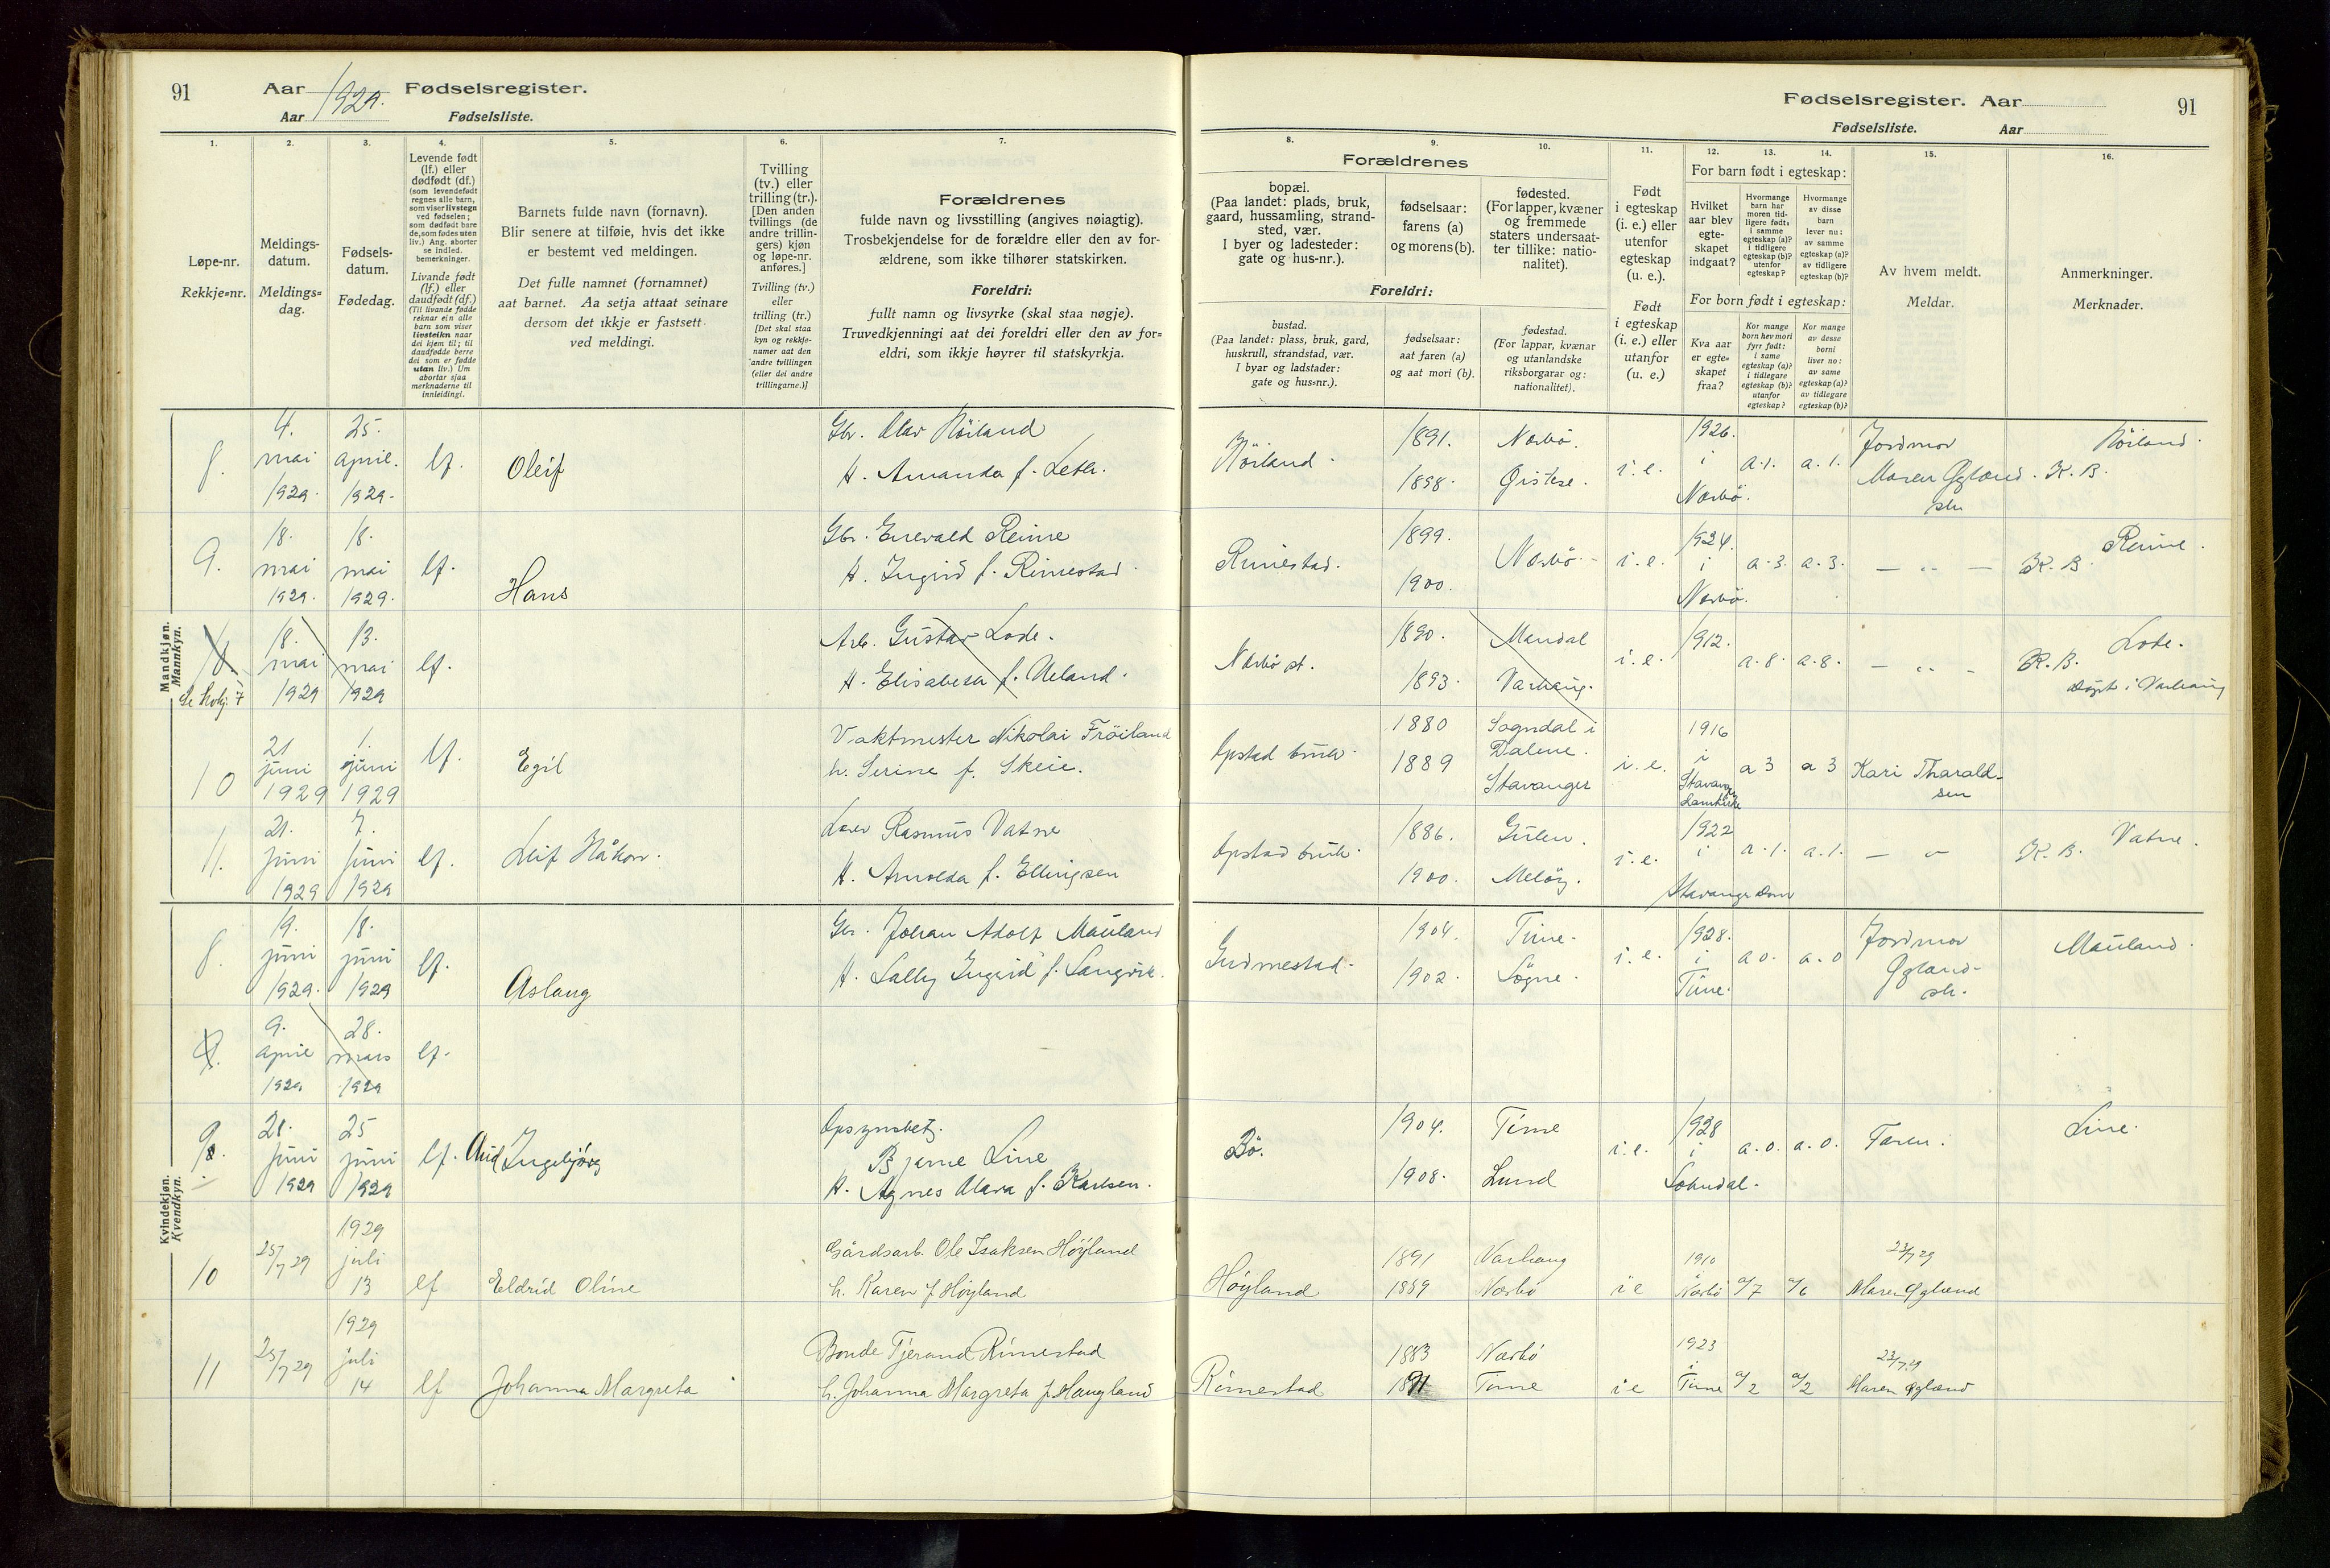 91
Aar 1929. Fødselsregister.
Aar Fødselsliste.
1.
Løpe-nr.
Rekkje-nr.
2.
Meldings-
datum.
Meldings-
dag.
3.
Fødsels-
datum.
Fødedag.
4.
Levende født
(lf.) eller
dødfødt (df.)
(som levendefødt
regnes alle barn,
som viser livstegn
ved fødselen;
som dødfødt bare
de, som fødes uten
liv.) Ang. aborter
se indled.
bemerkninger.
Livande født
(lf.) eller
daudfødt (df.)
(Til livande fødde
reknar ein alle
barn som viser
livsteikn naar
dei kjem til; til
daudfødde berre
dei som er fødde
utan liv.) Um
abortar sjaa
merknaderne til
innleidingi.
5.
Barnets fulde navn (fornavn).
Blir senere at tilføie, hvis det ikke
er bestemt ved meldingen.
Det fulle namnet (fornamnet)
aat barnet. Aa setja attaat seinare
dersom det ikkje er fastsett
ved meldingi.
6.
Tvilling
(tv.) eller
trilling (tr.).
[Den anden
tvillings (de
andre trillin-
gers) kjøn
og løpe-nr.
anføres.]
Tvilling (tv.)
eller
trilling (tr.)
[Det skal staa
kyn og rekkje-
numer aat den
andre tvillingen
(eller dei andre
trillingarne.)]
7.
Forældrenes
fulde navn og livsstilling (angives nøiagtig).
Trosbekjendelse for de forældre eller den av for-
ældrene, som ikke tilhører statskirken.
Foreldri:
fullt namn og livsyrke (skal staa nøgje).
Truvedkjenningi aat dei foreldri eller den av for-
eldri, som ikkje høyrer til statskyrkja.
Fødselsregister. Aar
91
Fødselsliste. Aar
8.
Forældrenes
bopæl.
(Paa landet: plads, bruk,
gaard, hussamling, strand-
sted, vær.
I byer og ladesteder:
gate og hus-nr.).
Foreldri:
bustad.
(Paa landet: plass, bruk, gard,
huskrull, strandstad, vær.
I byar og ladstader:
gate og hus-nr.).
9.
fødselsaar:
farens (a)
og morens (b).
fødselsaar:
aat faren (a)
og aat mori (b).
10.
fødested.
(For lapper, kvæner
og fremmede
staters undersaat-
ter tillike: natio-
nalitet).
fødestad.
(For lappar, kvænar
og utanlandske
riksborgarar og:
nationalitet).
11.
Født
i egteskap
(i. e.) eller
utenfor
egteskap
(u. e.).
Født
i egteskap
(i. e.) eller
utanfor
(u. e.)
12. 13. 14.
For barn født i egteskap:
Hvilket
aar blev
egte-
skapet
indgaat?
Hvormange
barn har
moren tid-
ligere født:
i samme
egteskap (a)?
i tidligere
egteskap (b)?
utenfor
egteskap?
Hvormange
av disse
barn
lever nu:
av samme
egteskap (a)?
av tidligere
egteskap (b)?
For born født i egteskap:
Kva aar
er egte-
skapet
fraa?
Kor mange
born hev mori
fyrr født:
i same
egteskap (a)?
i tidlegare
egteskap (b)?
utanfor
egteskap?
Kor mange
av desse
borni
liver no:
av same
egteskap (a)?
av tidlegare
egteskap (b)?
15.
Av hvem meldt.
Meldar.
16.
Anmerkninger.
Merknader.
Mandkjøn.
Mannkyn.
8. 4. mai 1929. 25. april. 1929. lf. Oleif
Gbr. Olav Nöiland
H. Amanda f. Leth.
Nöiland. 1891. 1898. Nærbö. Øistese. i. e. 1926. i Nærbö. a. 1. a. 1. Jordmor Maren Øgland. K. B. Nöiland.
9. 18. mai 1929. 18. mai 1929. lf. Hans
Gbr. Enevald Reime
H. Ingrid f. Rimestad.
Rimestad. 1899. 1900. Nærbö. i. e. 1924. i Nærbö. a. 3. a. 3. — „ — K. B. Reime.
18. mai 1929 13. mai 1929 lf.
Arb. Gustav Lode.
H. Elisabeth f. Ueland.
Nærbö st. 1890. 1893. Mandal Varhaug. i. e. 1912. a. 8. a. 8. — „ — K. B. Lode.
döpt i Varhaug
10 21 juni 1929 1. juni 1929 lf. Egil
Vaktmester Nikolai Fröiland
h. Serine f. Skeie.
Opstad bruk. 1880 1889 Sogndal i Dalene. Stavanger i. e. 1916 i Stavanger a 3 a 3 Kari Tharald-
sen
11. 21. juni 1929 7. juni 1929 lf. Leif Håkon.
Lærer Rasmus Vatne
H. Arnolda f. Ellingsen
Opstad bruk. 1886. 1900. Gulen. Melöy. i. e. 1922 i Stavanger Dom a. 1. a. 1. — „ K. B. Vatne.
Kvindekjøn.
Kvendkyn.
8. 19. juni 1929. 18. juni 1929 lf. Aslaug
Gbr. Johan Adolf Mauland
H. Lally Ingrid f. Langvik.
Gudmestad. 1904. 1902. Time. Sögne. i. e. 1928. i Time. a 0. a. 0 Jordmor Øgland. Mauland.
9. 9. april 1929 28. mars 1929 lf.
9. 28. juni 1929 25 juni 1929 lf. Aud Ingebjörg
Opsynsbetj.
Bjarne Line
H. Agnes Klara f. Karlsen.
Bö. 1904. 1908. Time Lund i. e. 1928 i Sokndal. a. 0. a. 0. Faren. Line.
10 25/7 29 1929 juli 13 lf Eldrid Oline
Gårdsarb. Ole Isaksen Höyland
h. Karen f. Höyland
Höyland 1891 1889 Varhaug Nærbö i e 1910 Nærbö a/7 a/6 23/7 29 Maren Øgland
11 25/7 29 1929 juli 14 lf Johanna Margreta
Bonde Tjerand Rimestad
h. Johanna Margreta f. Haugland
Rimestad 1883 1891 Nærbö Time i e 1923 i Time a/2 a/2 23/7 29 Maren Øgland